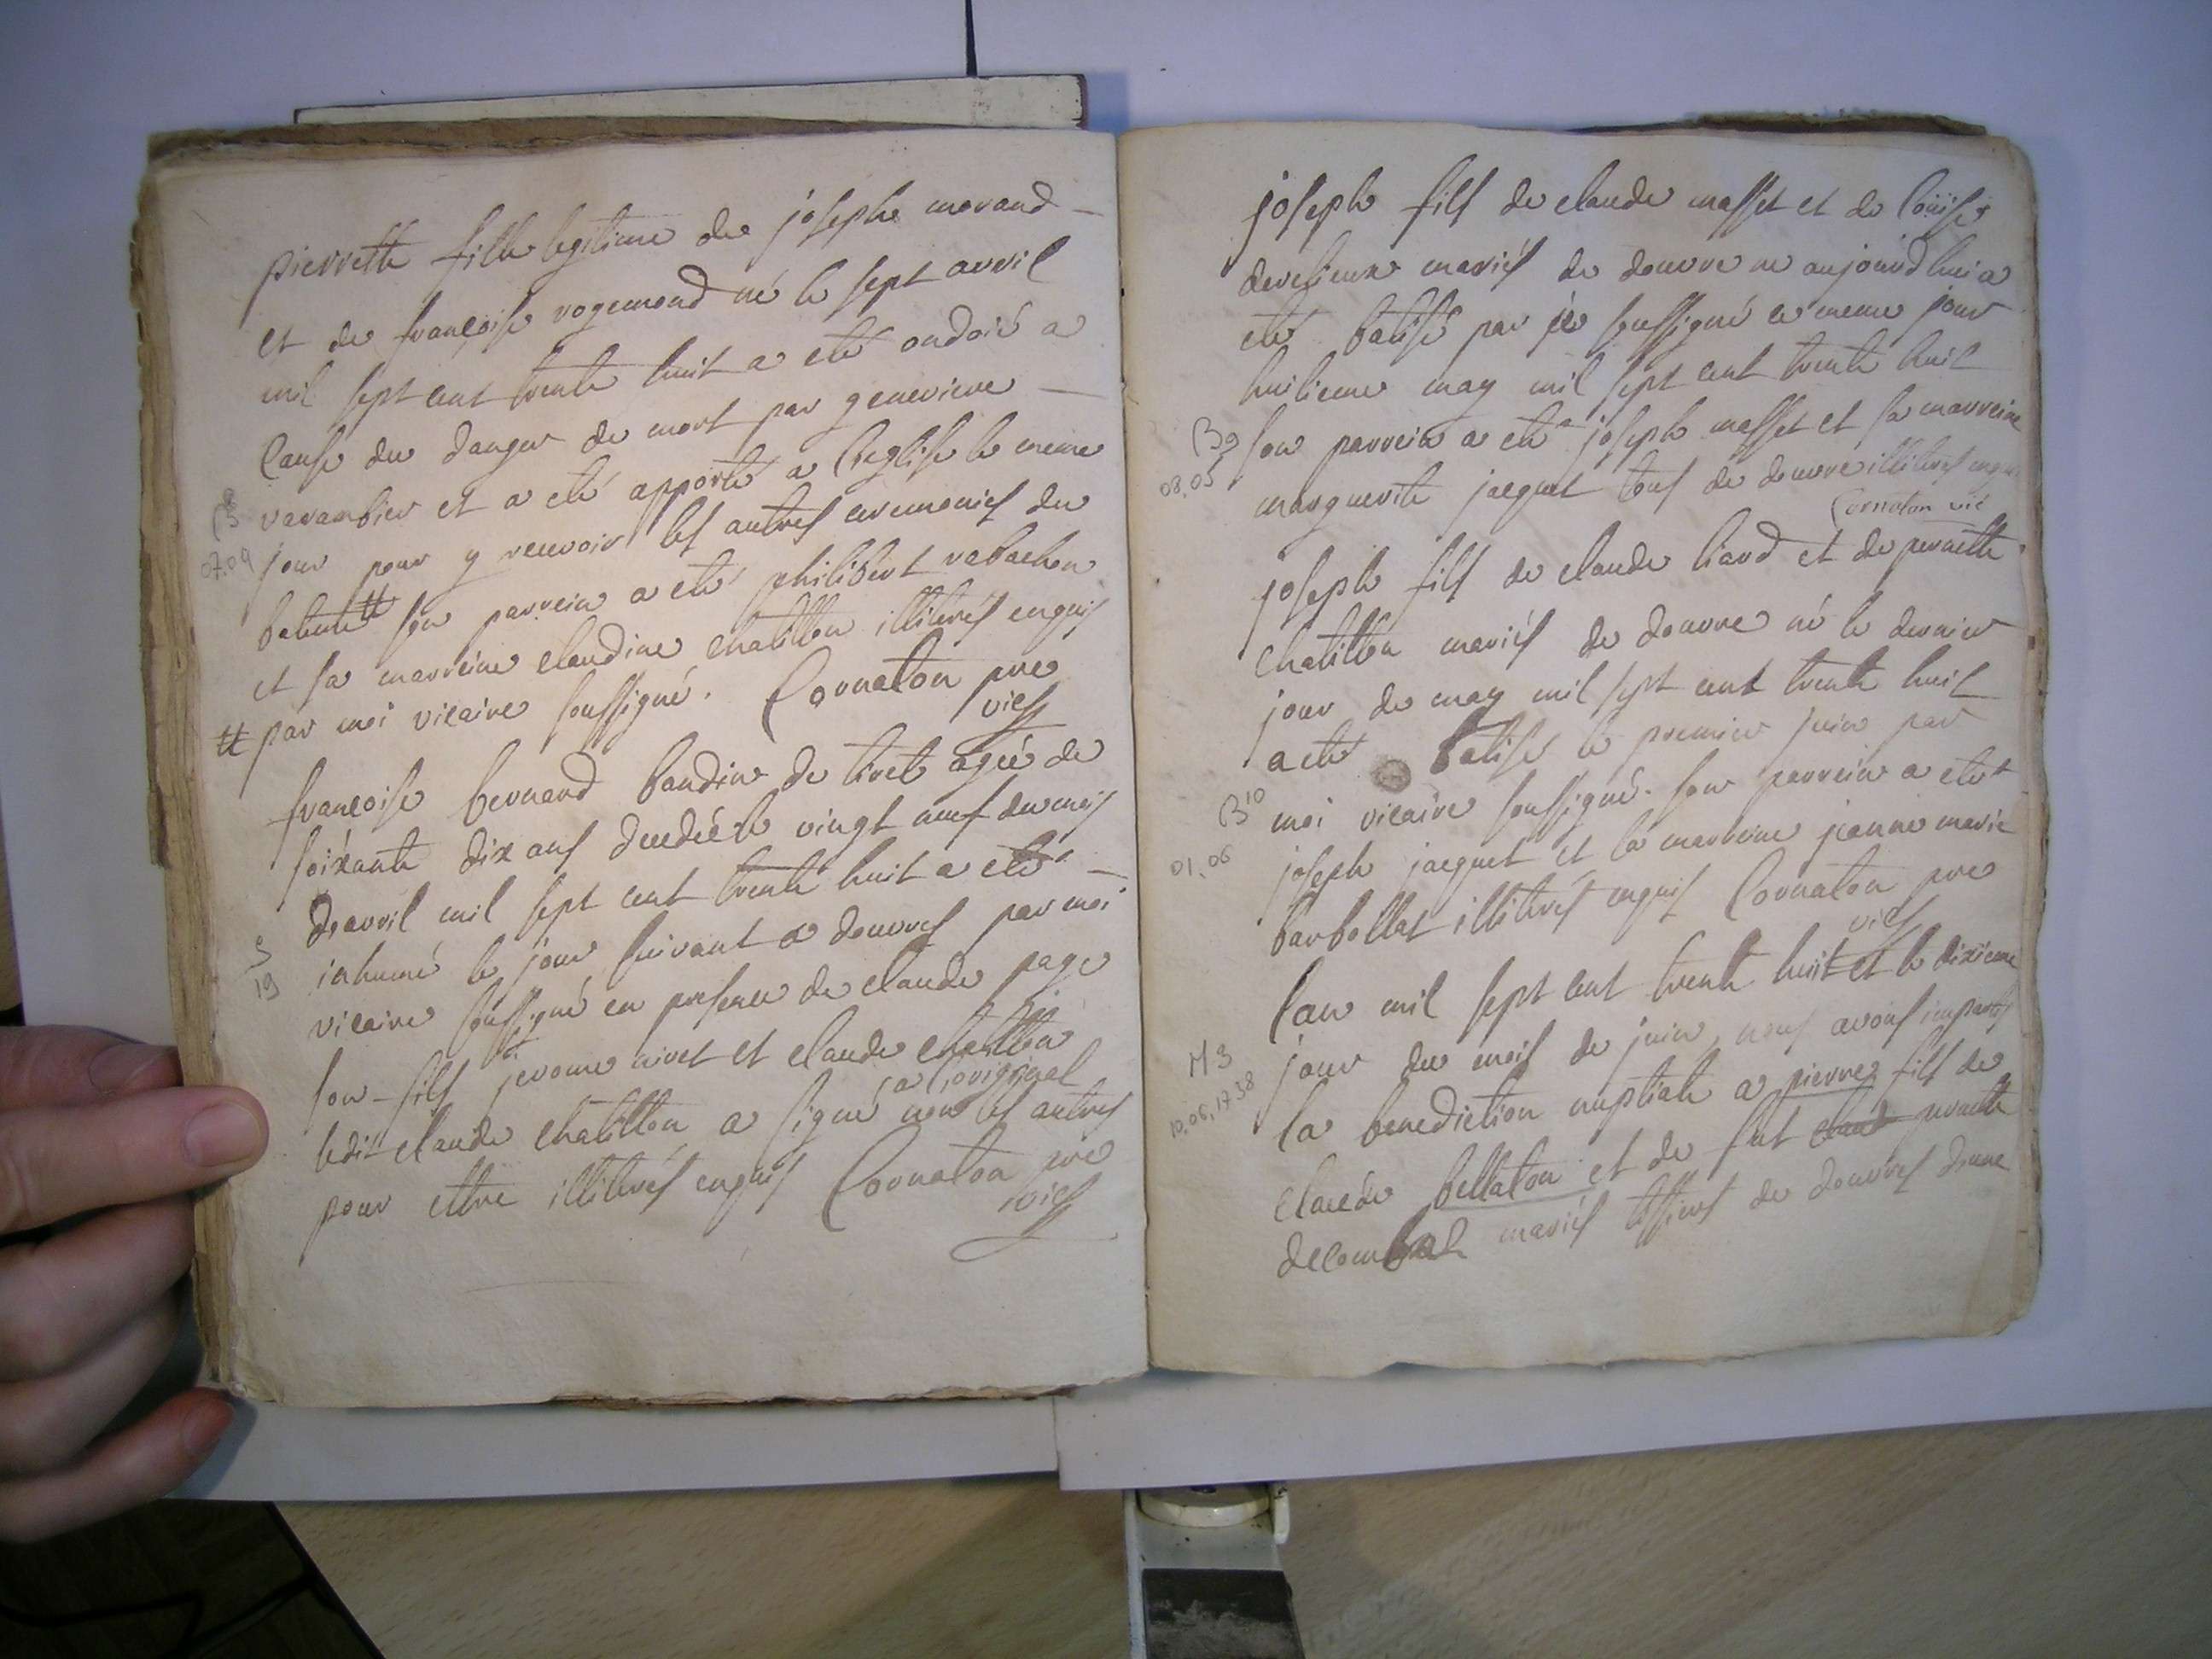 pierrette fille legitime de joseph morand
et de françoise rogemond né le sept avril
mil sept cent trente huit a eté ondoié a
cause du danger de mort par genevieve
varambier et a eté apporté a l'eglise le meme
B8
07.09
jour pour y recevoir les autres ceremonies du
bateme # son parrein a eté philibert rabachon
et sa marreine claudine chatillon illiterés enquis
# par moi vicaire soussigné. Cornaton pre
vics
françoise bernard baudin de tiret agée de
soixante dix ans decedée le vingt neuf du mois
d'avril mil sept cent trente huit a eté
S
19
inhumé le jour suivant a douvres par moi
vicaire soussigné en presence de claude page
son fils jerome nivet et claude chatillon
ledit claude chatillon a signé a l'original non les autres
pour ettre illiterés enquis Cornaton pre
vics
joseph fils de claude masset et de loüise
derelieux mariés de douvre né aujourd'huia
eté batisé par je soussigné ce meme jour
huitieme may mil sept cent trente huit
B9
08.05
son parrein a eté joseph masset et sa marreine
marguerite jacquet tous de douvre illiterés enquis
Cornaton vic
joseph fils de claude liard et de pernette
chatillon mariés de douvre né le dernier
jour de may mil sept cent trente huit
a eté batisé le premier juin par
B10
01.06
moi vicaire soussigné. son parrein a eté
joseph jacquet et la marreine jeanne marie
barbollat illiterés enquis Cornaton pre
vics
l'an mil sept cent trente huit et le dixieme
M3
10.06.1738
jour du mois de juin, nous avons impartis
la benediction nuptiale a pierre fils de
claude bellaton et de fut claud pernette
decombal mariés tissiers de douvres d'une